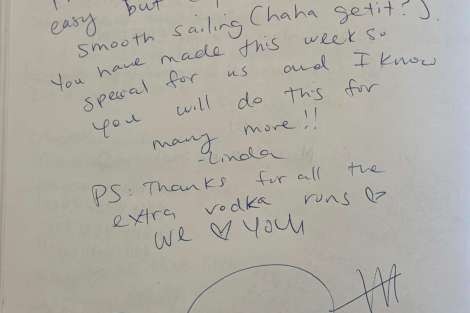 easy but
smooth sailing (haha getit?).
You have made this week so
special for us and I know
you will do this for
many more!!
-Linda
PS: Thanks for all the
extra vodka runs ♡
we ♡ YOU!